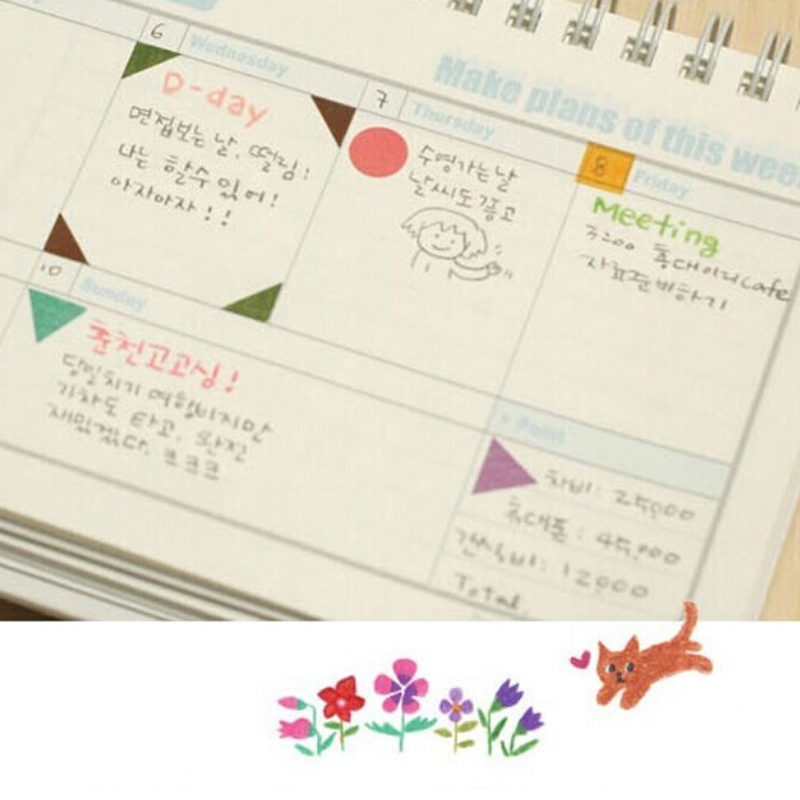 Make plans of this wee
6 Wednesday
D-day
면접보는 날. 떨림!
나는 할수 있어!
아자아자!!
7 Thursday
수영가는날
날씨도 좋고
8 Friday
Meeting
3:00 홍대이리cafe
자료준비하기
10 Sunday
춘천고고싱!
당일치기 여행이지만
기차도 타고, 완전
재밌겠다. ㅋㅋㅋ
* Point
차비: 25,000
휴대폰: 45,000
간식비: 12,000
Total.